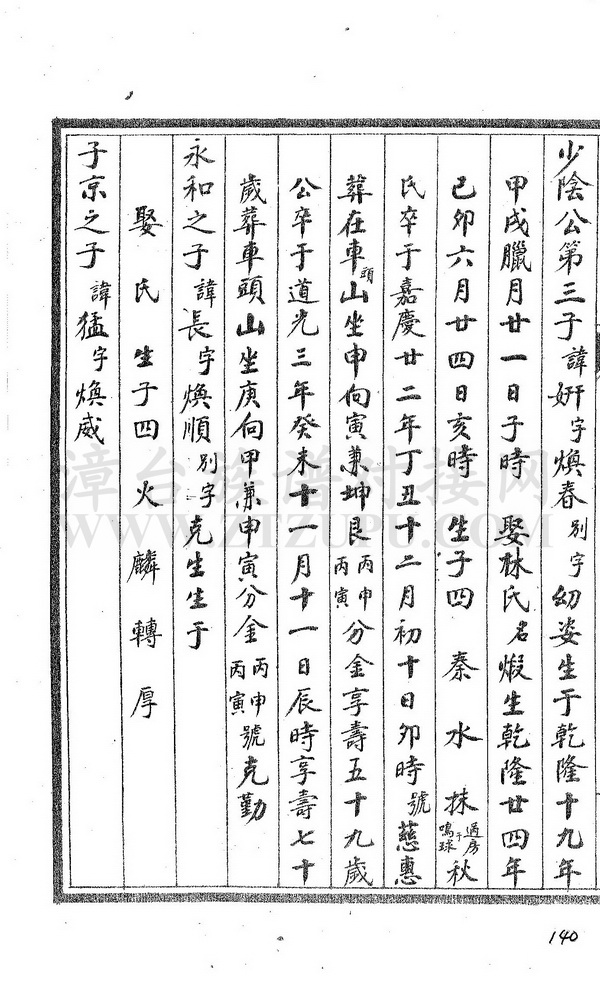 少陰公第三子諱妍字煥春別字幼姿生于乾隆十九年
甲戌臘月廿一日子時 娶林氏名煅生乾隆廿四年
己卯六月廿四日亥時 生子四 秦 水 抹過房于鳴球 秋
氏卒于嘉慶廿二年丁丑十二月初十日卯時號慈惠
葬在車頭山坐申向寅兼坤艮丙申丙寅分金享壽五十九歲
公卒于道光三年癸未十一月十一日辰時享壽七十
歲葬車頭山坐庚向甲兼申寅分金丙申丙寅號克勤
永和之子諱長字煥順別字克生生于
娶 氏 生子四 火 麟 轉 厚
子京之子諱猛字煥威
漳台族谱对接网
WWW.ZTZUPU.COM
140